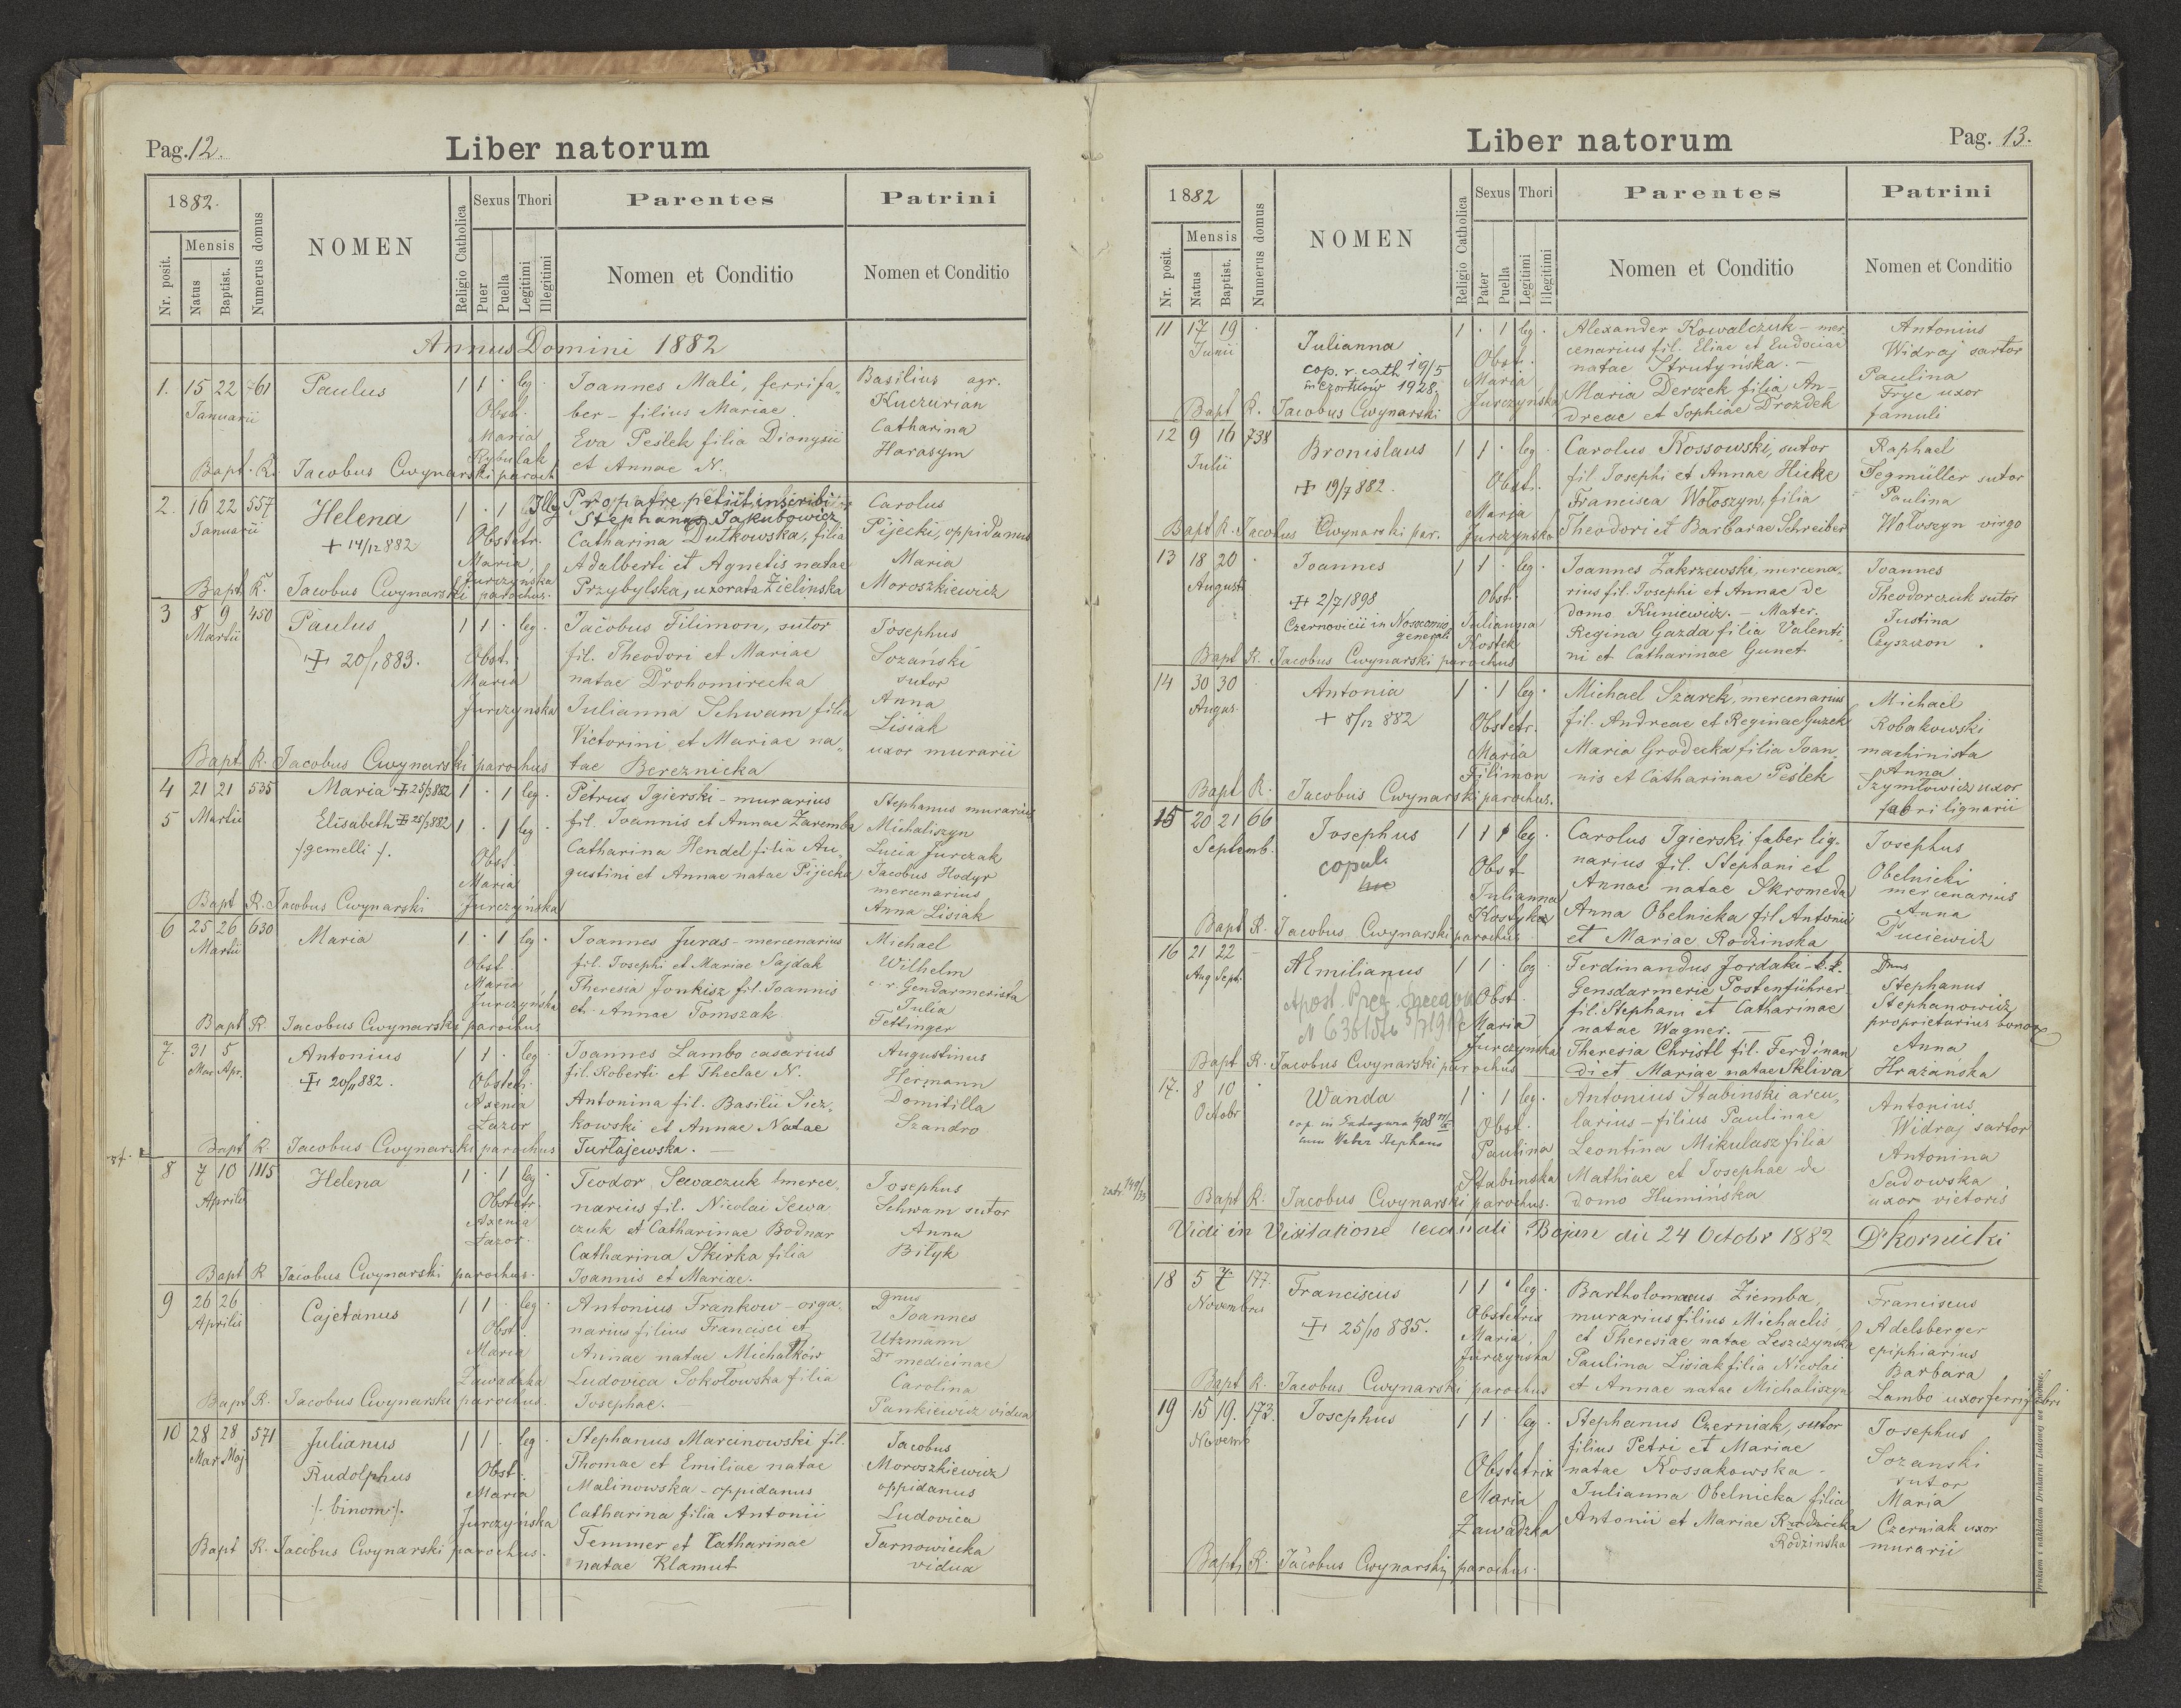 Pag. 12.
Liber natorum
1882.
Nr. posit.
Mensis
Natus
Baptist.
Numerus domus
NOMEN
Religio Catholica
Sexus
Puer
Puella
Thori
Legitimi
Illegitimi
Parentes
Nomen et Conditio
Patrini
Nomen et Conditio
Annus Domini 1882
1. 15 22 761 Paulus 1 1 · leg ·
Januarii
Obst.
Maria
Rybulak
Joannes Mali, ferrifa-
ber – filius Mariae.
Eva Peślek filia Dionysii
et Annae N.
Basilius agr.
Kuczurian
Catharina
Harasym
Bapt. R. Jacobus Cwynarski paroch
2. 16 22 557 Helena 1 · 1 Illeg
Januarii
+ 14/12 882
Obstetr.
Maria
Jurczyńska
Pro patre petiit inscribi
Stephanus Jakubowicz
Catharina Dutkowska, filia
Adalberti et Agnetis natae
Przybylska, uxorata Zielinska
Carolus
Pijecki, oppidanus
Maria
Moroszkiewicz
Bapt R. Jacobus Cwynarski parochus.
3 8 9 450 Paulus 1 1 · leg ·
Martii
+ 20/1 883.
Obst.
Maria
Jurczynska
Jacobus Filimon, sutor
fil. Theodori et Mariae
natae Drohomirecka
Julianna Schwam filia
Victorini et Mariae na-
tae Bereznicka
Josephus
Sozański
sutor
Anna
Lisiak
uxor murarii
Bapt R. Jacobus Cwynarski parochus
4 21 21 535 Maria + 25/3 882 1 · 1 leg ·
5 Martii Elisabeth + 25/3 882 1 · 1 leg ·
/gemelli/.
Obst.
Maria
Jurczyńska
Petrus Igierski – murarius
fil. Joannis et Annae Zaremba
Catharina Hendel filia Au-
gustini et Annae natae Pijecka
Stephanus murarius
Michaliszyn
Lucia Jurczak
Jacobus Hodyr
mercenarius
Anna Lisiak
Bapt R. Jacobus Cwynarski
6 25 26 630 Maria 1 · 1 leg ·
Martii
Obst
Maria
Jurczyńska
Joannes Juras – mercenarius
fil. Josephi et Mariae Sajdak
Theresia Jonkisz fil. Joannis
et Annae Tomszak
Michael
Wilhelm
c. r. Gendarmerista
Julia
Fettinger
Bapt R. Jacobus Cwynarski parochus
7. 31 5 Antonius 1 1 · leg ·
Mar. Apr.
+ 20/4 882.
Obstetr.
Axenia
Łazor
Joannes Lambo casarius
fil. Roberti et Theclae N.
Antonina fil. Basilii Siez-
kowski et Annae Natae
Turtajewska. —
Augustinus
Hermann
Domitilla
Szandro
Bapt R. Jacobus Cwynarski parochus
8 7 10 1115 Helena 1 · 1 leg ·
Aprilis
Obstetr.
Axenia
Łazor.
Teodor Sewaczuk merce-
narius fil. Nicolai Sewa
czuk et Catharinae Bodnar
Catharina Skirka filia
Joannis et Mariae.
Josephus
Schwam sutor
Anna
Biłyk
Bapt R Jacobus Cwynarski parochus.
9 26 26 Cajetanus 1 1 · leg ·
Aprilis
Obst
Maria
Zawadzka
Antonius Frankow – orga-
narius filius Francisci et
Annae natae Michałków
Ludovica Sokołowska filia
Josephae. —
Dnus
Joannes
Utzmann
Dr medicinae
Carolina
Pankiewicz vidua
Bapt R. Jacobus Cwynarski parochus.
10 28 28 571 Julianus 1 1 · leg ·
Mar Maj
Rudolphus
/. binom /.
Obst.
Maria
Jurczyńska
Stephanus Marcinowski fil.
Thomae et Emiliae natae
Malinowska – oppidanus
Catharina filia Antonii
Temmer et Catharinae
natae Klamut
Jacobus
Moroszkiewicz
oppidanus
Ludovica
Tarnowiecka
vidua
Bapt R. Jacobus Cwynarski parochus.
Liber natorum
Pag. 13.
1882
Nr. posit.
Mensis
Natus
Baptist.
Numerus domus
NOMEN
Religio Catholica
Sexus
Pater
Puella
Thori
Legitimi
Illegitimi
Parentes
Nomen et Conditio
Patrini
Nomen et Conditio
11 17 19 · Julianna 1 · 1 leg ·
Junii
cop. r. cath 19/5
in Czortków 1928.
Obst.
Maria
Jurczyńska
Alexander Kowalczuk – mer-
cenarius fil. Eliae et Eudociae
natae Strutyńska. –
Maria Derczek filia An-
dreae et Sophiae Drozdek
Antonius
Widraj sartor
Paulina
Fryc uxor
famuli
Bapt R. Jacobus Cwynarski
12 9 16 738 Bronislaus 1 1 · leg ·
Julii
+ 19/7 882.
Obst.
Maria
Jurczynska
Carolus Kossowski, sutor
fil Josephi et Annae Hicke
Francisca Wołoszyn, filia
Theodori et Barbarae Schreiber
Raphael
Segmüller sutor
Paulina
Wołoszyn virgo
Bapt R. Jacobus Cwynarski par.
13 18 20 · Joannes 1 1 · leg ·
Augusti
+ 2/7 1898
Czernovicii in Nosocomio
generali
Obst.
Julianna
Kostek
Joannes Zakrzewski, mercena-
rius fil. Josephi et Annae de
domo Kuniewicz. – Mater.
Regina Gazda filia Valenti-
ni et Catharinae Gunet
Joannes
Theodorczuk sutor
Justina
Cyszczon
Bapt R. Jacobus Cwynarski parochus
14 30 30 Antonia 1 · 1 leg ·
Augus.
+ 8/12 882
Obstetr.
Maria
Filimon
Michael Szarek, mercenarius
fil. Andreae et Reginae Guzek
Maria Grodecka filia Joan-
nis et Catharinae Peślek
Michael
Robakowski
machinista
Anna
Szymłowicz uxor
fabri lignarii
Bapt R. Jacobus Cwynarski parochus.
15 20 21 66 Josephus 1 1 · leg ·
Septemb.
copul.
hic
Obst
Julianna
Carolus Igierski faber lig-
narius fil. Stephani et
Annae natae Skromeda
Anna Obelnicka fil Antonii
et Mariae Rodzinska
Josephus
Obelnicki
mercenarius
Anna
Duciewicz
Bapt R. Jacobus Cwynarski parochus
16 21 22 – AEmilianus 1 1 · leg ·
Aug Sept.
Obst.
Maria
Jurczynska
Ferdinandus Jordaki – k. k.
Gensdarmerie Postenführer
fil. Stephani et Catharinae
natae Wagner. —
Theresia Christl fil. Ferdinan
di et Mariae natae Skliva
Dnus
Stephanus
Stephanowicz
proprietarius bonor.
Anna
Hrazańska
Bapt R. Jacobus Cwynarski parochus
17. 8 10 · Wanda 1 · 1 leg ·
Octobr
cop. in Sadagura 1908
cum Weber Stephano
Obst.
Paulina
Stabinska
Antonius Stabinski arcu-
larius – filius Paulinae
Leontina Mikulasz filia
Mathiae et Josephae de
domo Humińska
Antonius
Widraj sartor
Antonina
Sadowska
uxor vietoris
Bapt R. Jacobus Cwynarski parochus.
Vidi in Visitatione decanali Bojan die 24 Octobr 1882 Dr Kornicki
18 5 7 177. Franciscus 1 1 · leg ·
Novembris
+ 25/10 885.
Obstetrix
Maria
Jurczynska
Bartholomaeus Ziemba,
murarius filius Michaelis
et Theresiae natae Leszczynska
Paulina Lisiak filia Nicolai
et Annae natae Michaliszyn
Franciscus
Adelsberger
epiphiarius
Barbara
Lambo uxor ferrifabri
Bapt R. Jacobus Cwynarski parochus
19 15 19. 173. Josephus 1 1 · leg ·
Novemb
Obstetrix
Maria
Zawadzka
Stephanus Czerniak, sutor
filius Petri et Mariae
natae Kossakowska.
Julianna Obelnicka filia
Antonii et Mariae
Rodzinska
Josephus
Sozanski
sutor
Maria
Czerniak uxor
murarii
Bapt. R. Jacobus Cwynarski parochus.
Drukiem i nakładem Drukarni Ludowej we Lwowie.